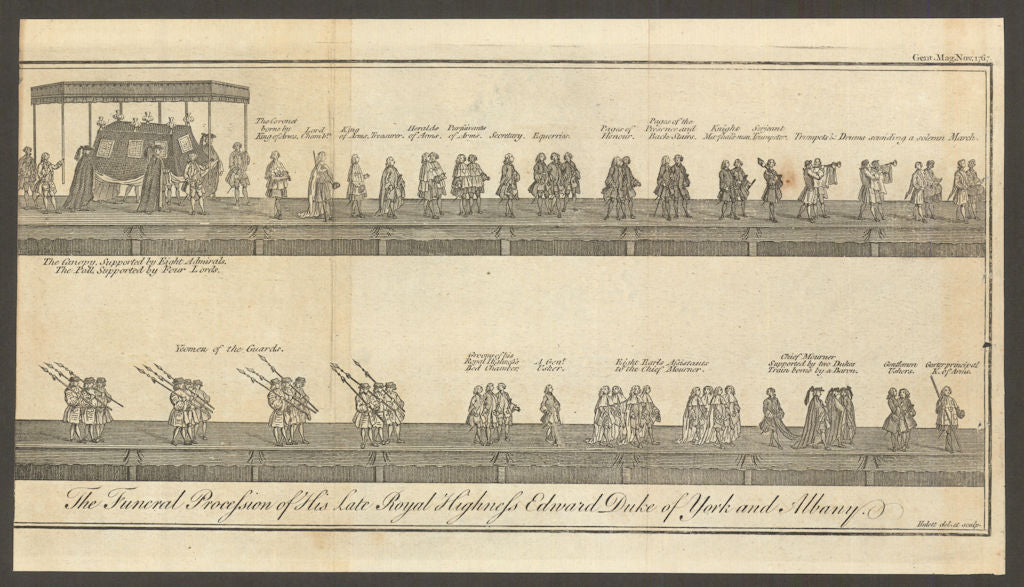 Gent. Mag. Nov. 1767.
The Coronet
borne by
King of Arms.
Lord
Chambn.
King
of Arms.
Treasurer.
Heralds
of Arms.
Pursuivants
of Arms.
Secretary.
Equerries.
Pages of
Honour.
Pages of the
Presence and
Back Stairs.
Knight
Marshals man.
Serjeant
Trumpeter.
Trumpets & Drums sounding a solemn March.
The Canopy, Supported by Eight Admirals.
The Pall, Supported by Four Lords.
Yeomen of the Guards.
Grooms of his
Royal Highness's
Bed Chamber.
A Gent.
Usher.
Eight Earls Assistants
to the Chief Mourner.
Chief Mourner
Supported by two Dukes
Train borne by a Baron.
Gentlemen
Ushers.
Garter principal
K. of Arms.
The Funeral Procession of His late Royal Highness Edward Duke of York and Albany.
Hulett del. et sculp.